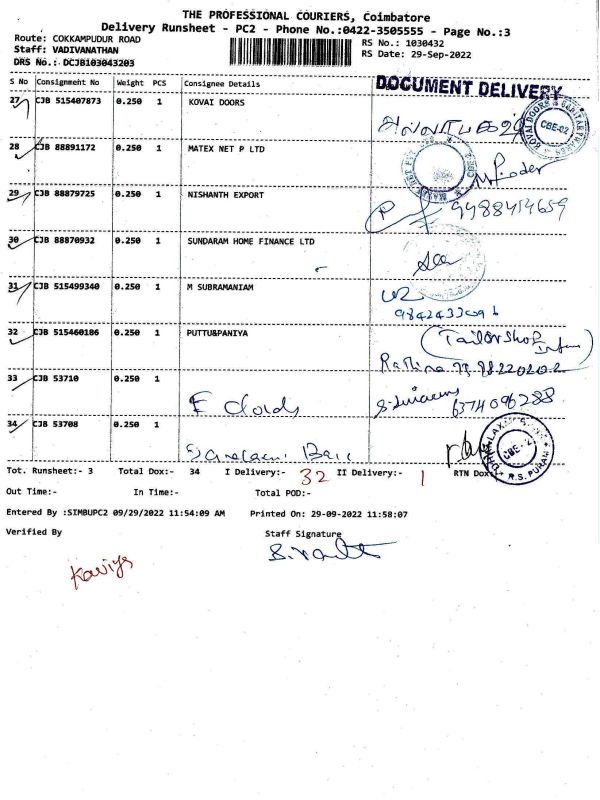 THE PROFESSIONAL COURIERS, Coimbatore
Delivery Runsheet - PC2 - Phone No.:0422-3505555 - Page No.:3
Route: COKKAMPUDUR ROAD
RS No.: 1030432
Staff: VADIVANATHAN
RS Date: 29-Sep-2022
DRS No.: DCJB103043203
S No Consignment No Weight PCS Consignee Details
DOCUMENT DELIVERY
27 CJB 515407873 0.250 1 KOVAI DOORS
KOVAI DOORS & SANITARYWARES CBE-02
28 CJB 88891172 0.250 1 MATEX NET P LTD
29 CJB 88879725 0.250 1 NISHANTH EXPORT
9488454659
30 CJB 88870932 0.250 1 SUNDARAM HOME FINANCE LTD
31 CJB 515499340 0.250 1 M SUBRAMANIAM
32 CJB 515460186 0.250 1 PUTTU&PANIYA
(Tailor shop
33 CJB 53710 0.250 1
6374096288
34 CJB 53708 0.250 1
CBE-2
R.S. PURAM
Tot. Runsheet:- 3 Total Dox:- 34 I Delivery:- 32 II Delivery:- 1 RTN Dox:
Out Time:- In Time:- Total POD:-
Entered By :SIMBUPC2 09/29/2022 11:54:09 AM Printed On: 29-09-2022 11:58:07
Verified By Staff Signature
Kaviya